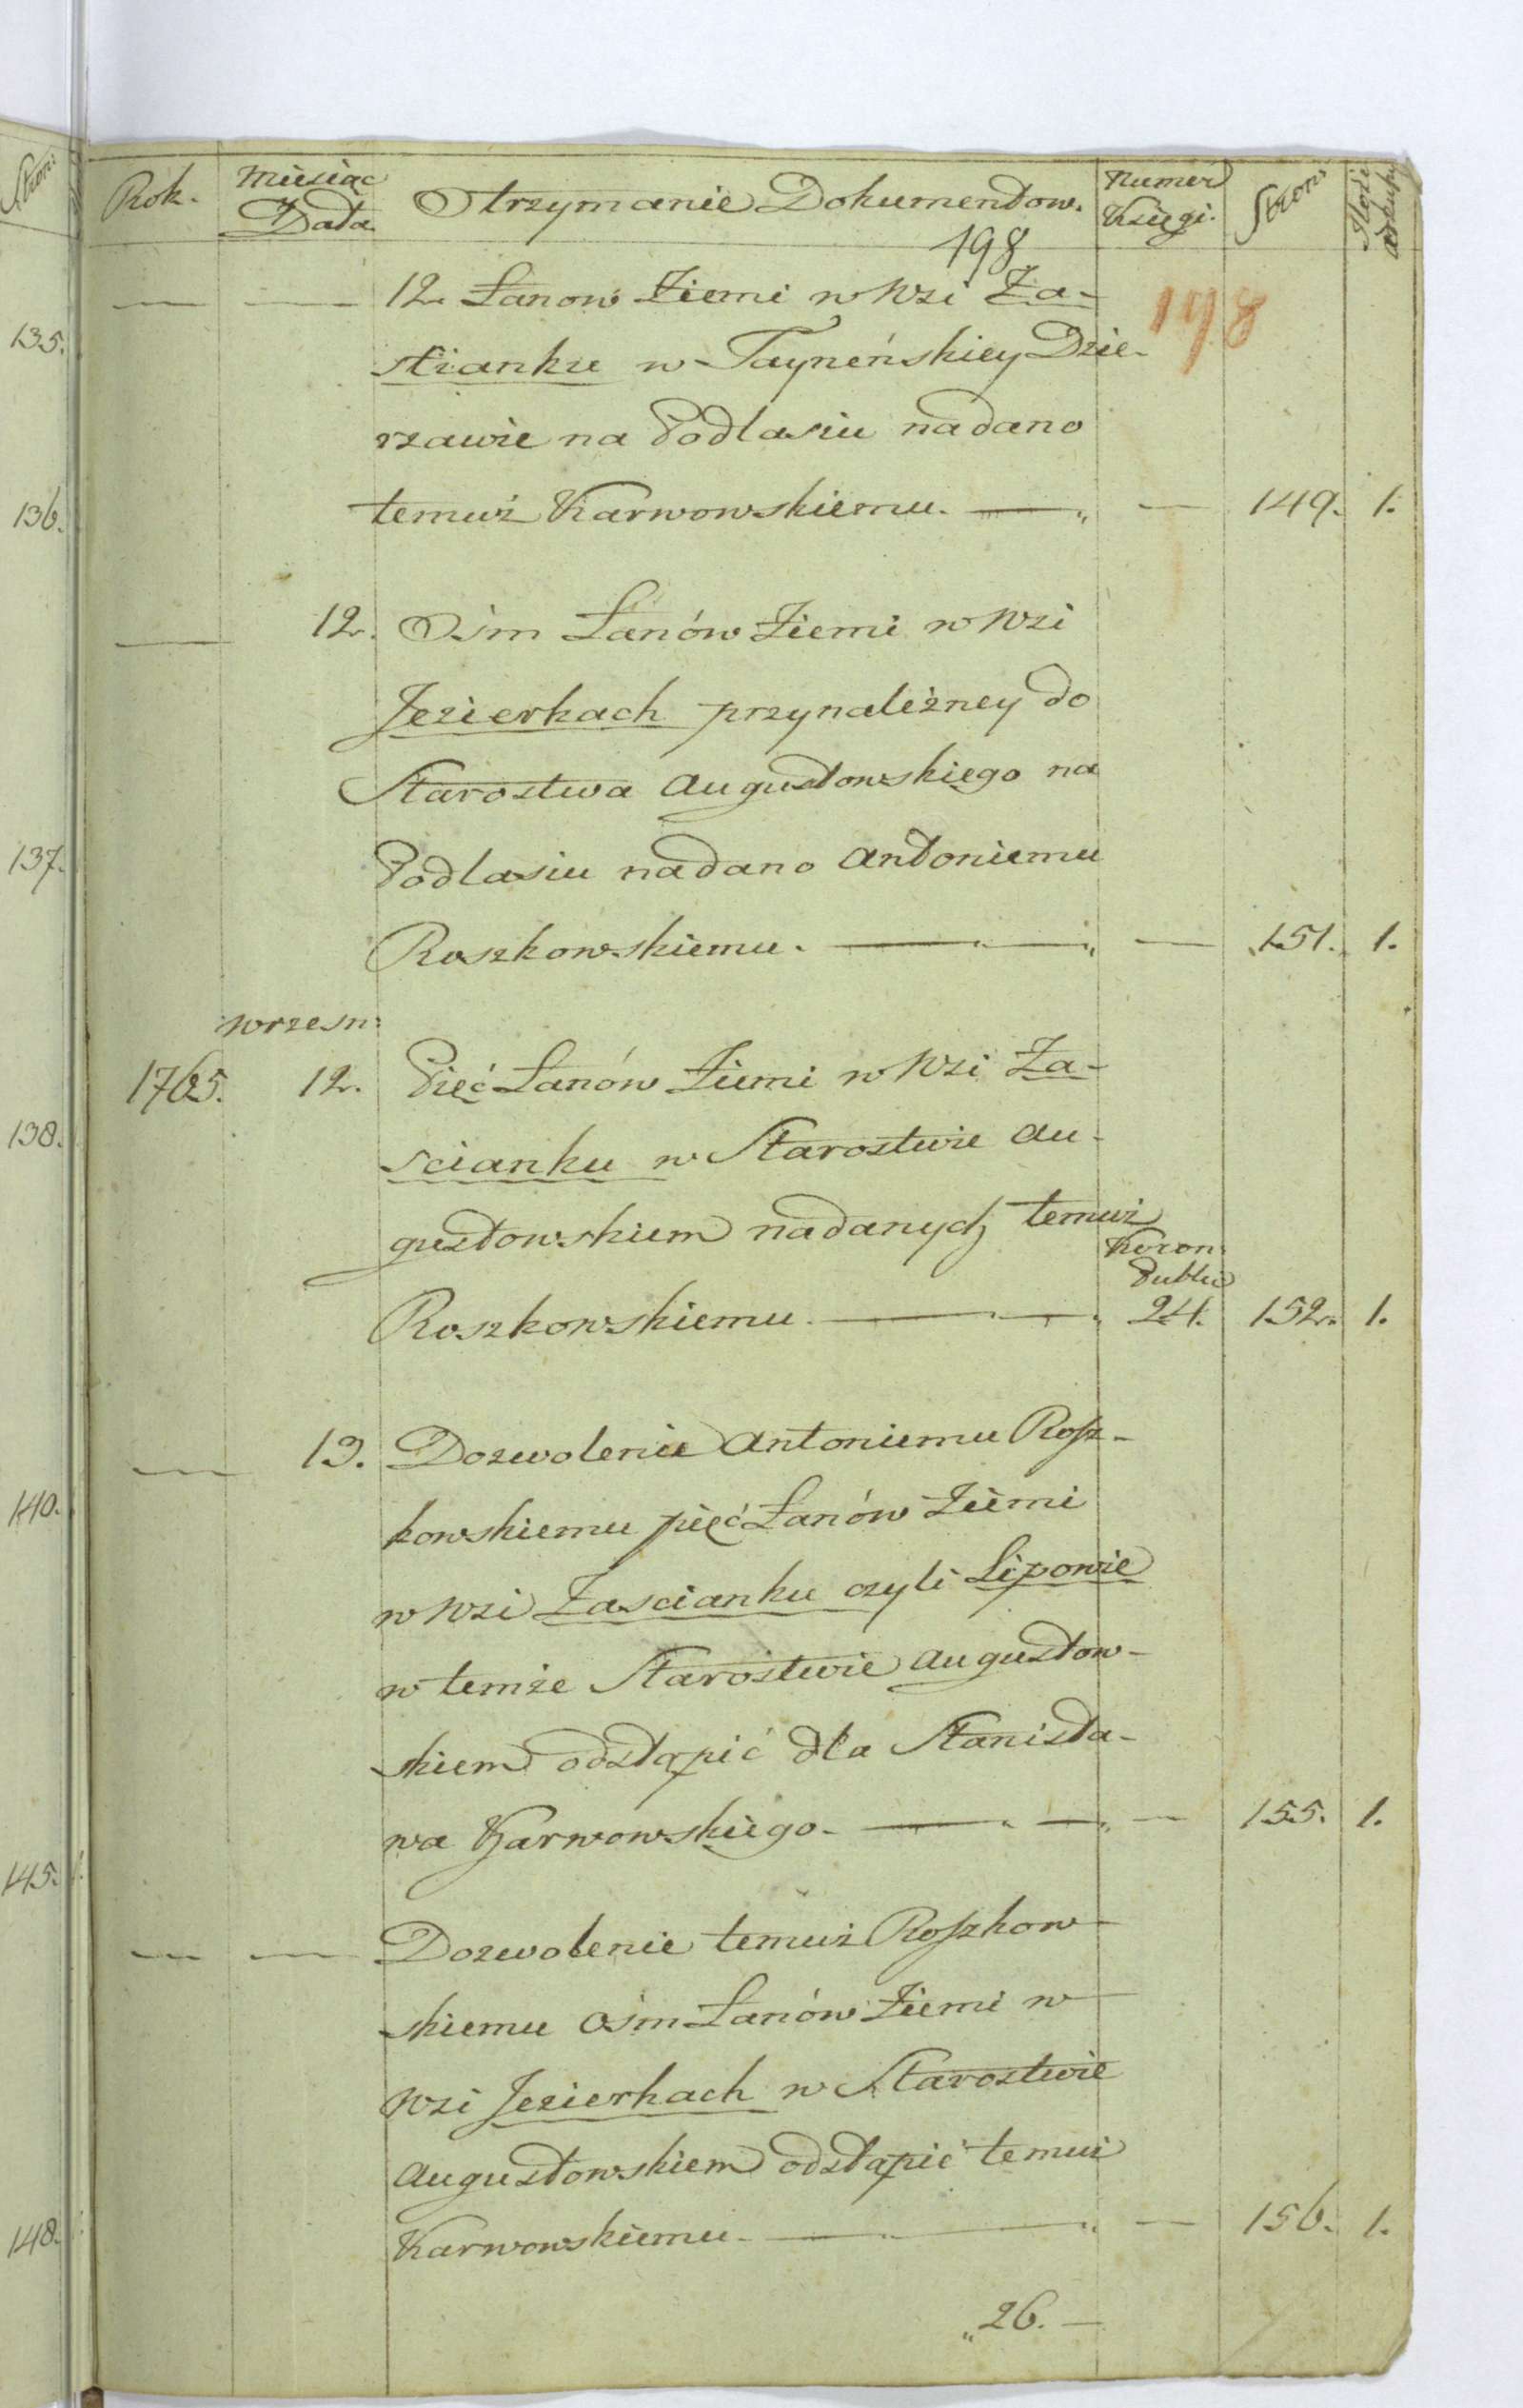 Stron:
135.
136.
137.
138.
140.
145. 1.
148.
Rok. Miesiąc Data Otrzymanie Dokumentow. Numer Księgi. Stron: Ilość arkuszy
198
178
— — 12 Łanow Ziemi w Wsi Za-
stianku w Tayneńskiey Dzie-
rzawie na Podlasiu nadano
temuż Karwowskiemu. — — 149. 1.
— 12. Ośm Łanów Ziemi w Wsi
Jezierkach przynależney do
Starostwa Augustowskiego na
Podlasiu nadano Antoniemu
Roszkowskiemu. — — 151. 1.
Wrzesn:
1765. 12. Pięć Łanów Ziemi w Wsi Za-
scianku w Starostwie Au-
gustowskiem nadanych temuż
Koron:
Public
Roszkowskiemu. — 24. 152. 1.
— 13. Dozwolenie Antoniemu Rosz-
kowskiemu pięć Łanów Ziemi
w Wsi Zascianku czyli Lipowie
w temże Starostwie Augustow-
skiem odstąpić dla Stanisła-
wa Karwowskiego. — — 155. 1.
— — Dozwolenie temuż Roszkow-
skiemu ośm Łanów Ziemi w
Wsi Jezierkach w Starostwie
Augustowskiem odstąpić temuż
Karwowskiemu. — — 156. 1.
„26. —